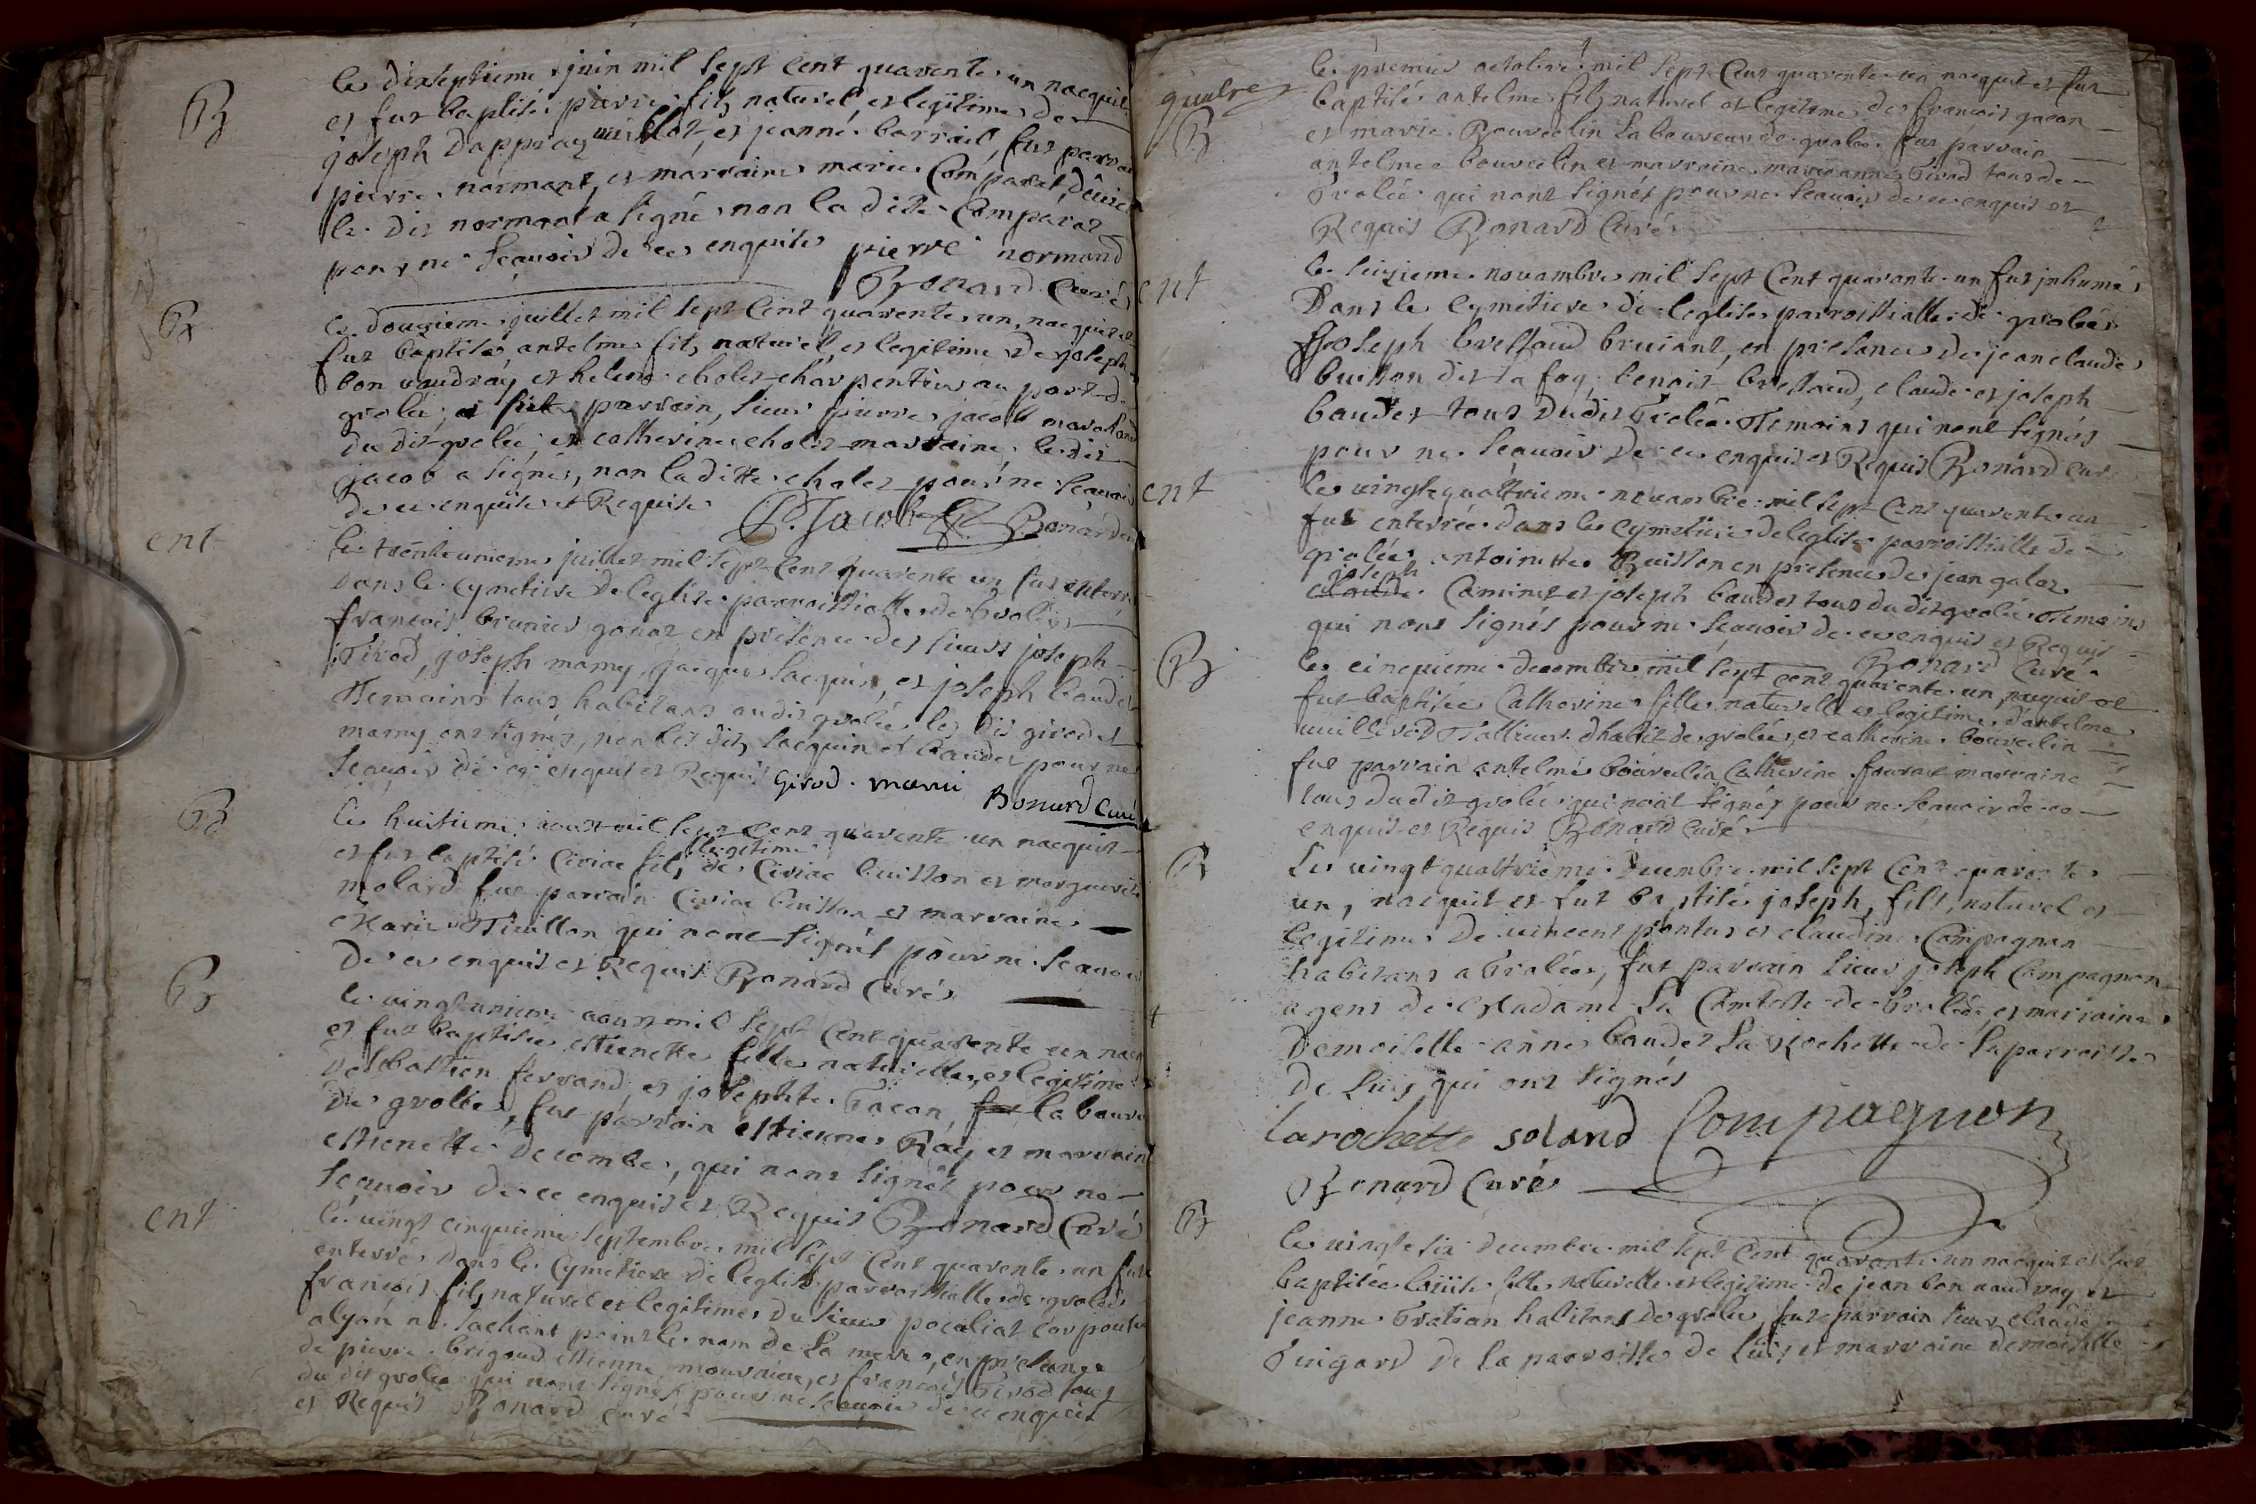 B
le dixseptieme juin mil sept cent quarente un nacquit
et fut baptisé pierre fils naturel et legitime de
joseph dappvray et jeanne barrail, fut parrain
pierre normant, et marraine marie Comparat
le dit normant a signé, non la dite Comparat
pour ne scauoir de ce enquise pierre normand
Bonard Curé
B
le douzieme juillet mil sept cent quarente un, nacquit et
fut baptisé antelme fils naturel et legitime de joseph
bon vaudray et helene cholet charpentier au port de
grolée, parrain, sieur pierre jacob
du dit grolée, et catherine cholet marraine, le dit
jacob a signés, non laditte cholet pour ne scauoir
de ce enquise et Requise P. Jacob Bonard
ent
le trenteunieme juillet mil sept cent quarente un fut enterré
dans le cymetiere de leglise parroissialle de Grolée
francois brunier gonat en présence des sieurs joseph
Girod, joseph mamy, jacque jacquin, et joseph baudet
Temoins tous habitans audit grolée les dit girod et
mamy ont signés, non les dits Jacquin et baudet pour ne
scauoir de ce enquis et Requis Girod . mami Bonard Curé
B
le huitieme aoust mil sept cent quarente un nacquit
et fut baptisé Ciriac fils legitime de Ciriac buisson et marguerite
molard fut parrain Ciriac buisson et marraine
Marie qui nont signés pour ne scauoir
de ce enquis et Requis Bonard Curé
B
le vingtunieme aoust mil sept cent quarente un
et fut baptisée estienette fille naturelle, et legitime
de sebastien ferrand et josephte Gacon, fut
de grolée, fut parrain estienne Ray et marraine
estienette Decombe, qui nont signés pour ne
scauoir de ce enquis et Requis Bonard Curé
ent
le vingt cinquieme septembre mil sept cent quarente un fut
enterré dans le Cymetiere de leglise parroissialle de grolée
francois fils naturel et legitime du sieur
ne sachant point le nom de la mere, en présence
de pierre brigoud estienne et francois Girod tous
du dit grolée qui nont signés pour ne scauoir de ce enquis
et Requis Bonard Curé
quatre
B
le premier octobre mil sept cent quarente un nacquit et fut
baptisé antelme fils naturel et legitime de francois gacon
et marie Bouvelin laboureur de grolée fut parrain
antelme bouvelin et marraine marieanne Girod tous de
Grolée qui nont signés pour ne scauoir de ce enquis et
Requis Bonard Curé
ent
le seizieme nouambre mil sept cent quarante un fut inhumé
Dans le cymetiere de leglise parroissialle de grolée
Joseph bressoud bruiant, en présance de jeanclaude
buisson dit la foy, benoit bressoud, claude et joseph
baudet tous dudit Grolée Temoins qui nont signés
pour ne scauoir de ce enquis et Requis Bonard Curé
ent
le vingtquattrieme nouambre mil sept cent quarente un
fut enterrée dans le cymetiere de leglise parroissialle de
grolée antoinette Buisson en présence de jean galoz
joseph
claude Caminet et joseph baudet tous du dit grolée Temoins
qui nont signés pour ne scauoir de ce enquis et Requis
Bonard Curé
B
le cinquieme decembre mil sept cent quarente un, nacquit et
fut baptisée Catherine fille naturelle et legitime d'antelme
vuillerod Tallieur d'habit de grolée, et catherine bouvelin
fut parrain antelme bouvelin Catherine marraine
tous dudit grolée qui nont signés pour ne scauoir de ce
enquis et Requis Bonard Curé
B
le vingt quattrieme Decembre mil sept cent quarente
un, nacquit et fut baptisé joseph, fils, naturel et
legitime de vincent pontus et claudine Compagnon
habitans a Grolée, fut parrain sieur joseph Compagnon
agent de Madame la Comtesse de Grolée, et marraine
Demoiselle anne baudet la Rochette de la parroisse
de Luis, qui ont signés
larochette soland Compagnon
Bonard Curé
B
le vingt six decembre mil sept cent quarante un nacquit et fut
baptisée fille naturelle et legitime de jean bon vaudray et
jeanne Gratian habitans de grolée, fut parrain sieur claude
Guigard de la parroisse de Luis et marraine demoiselle